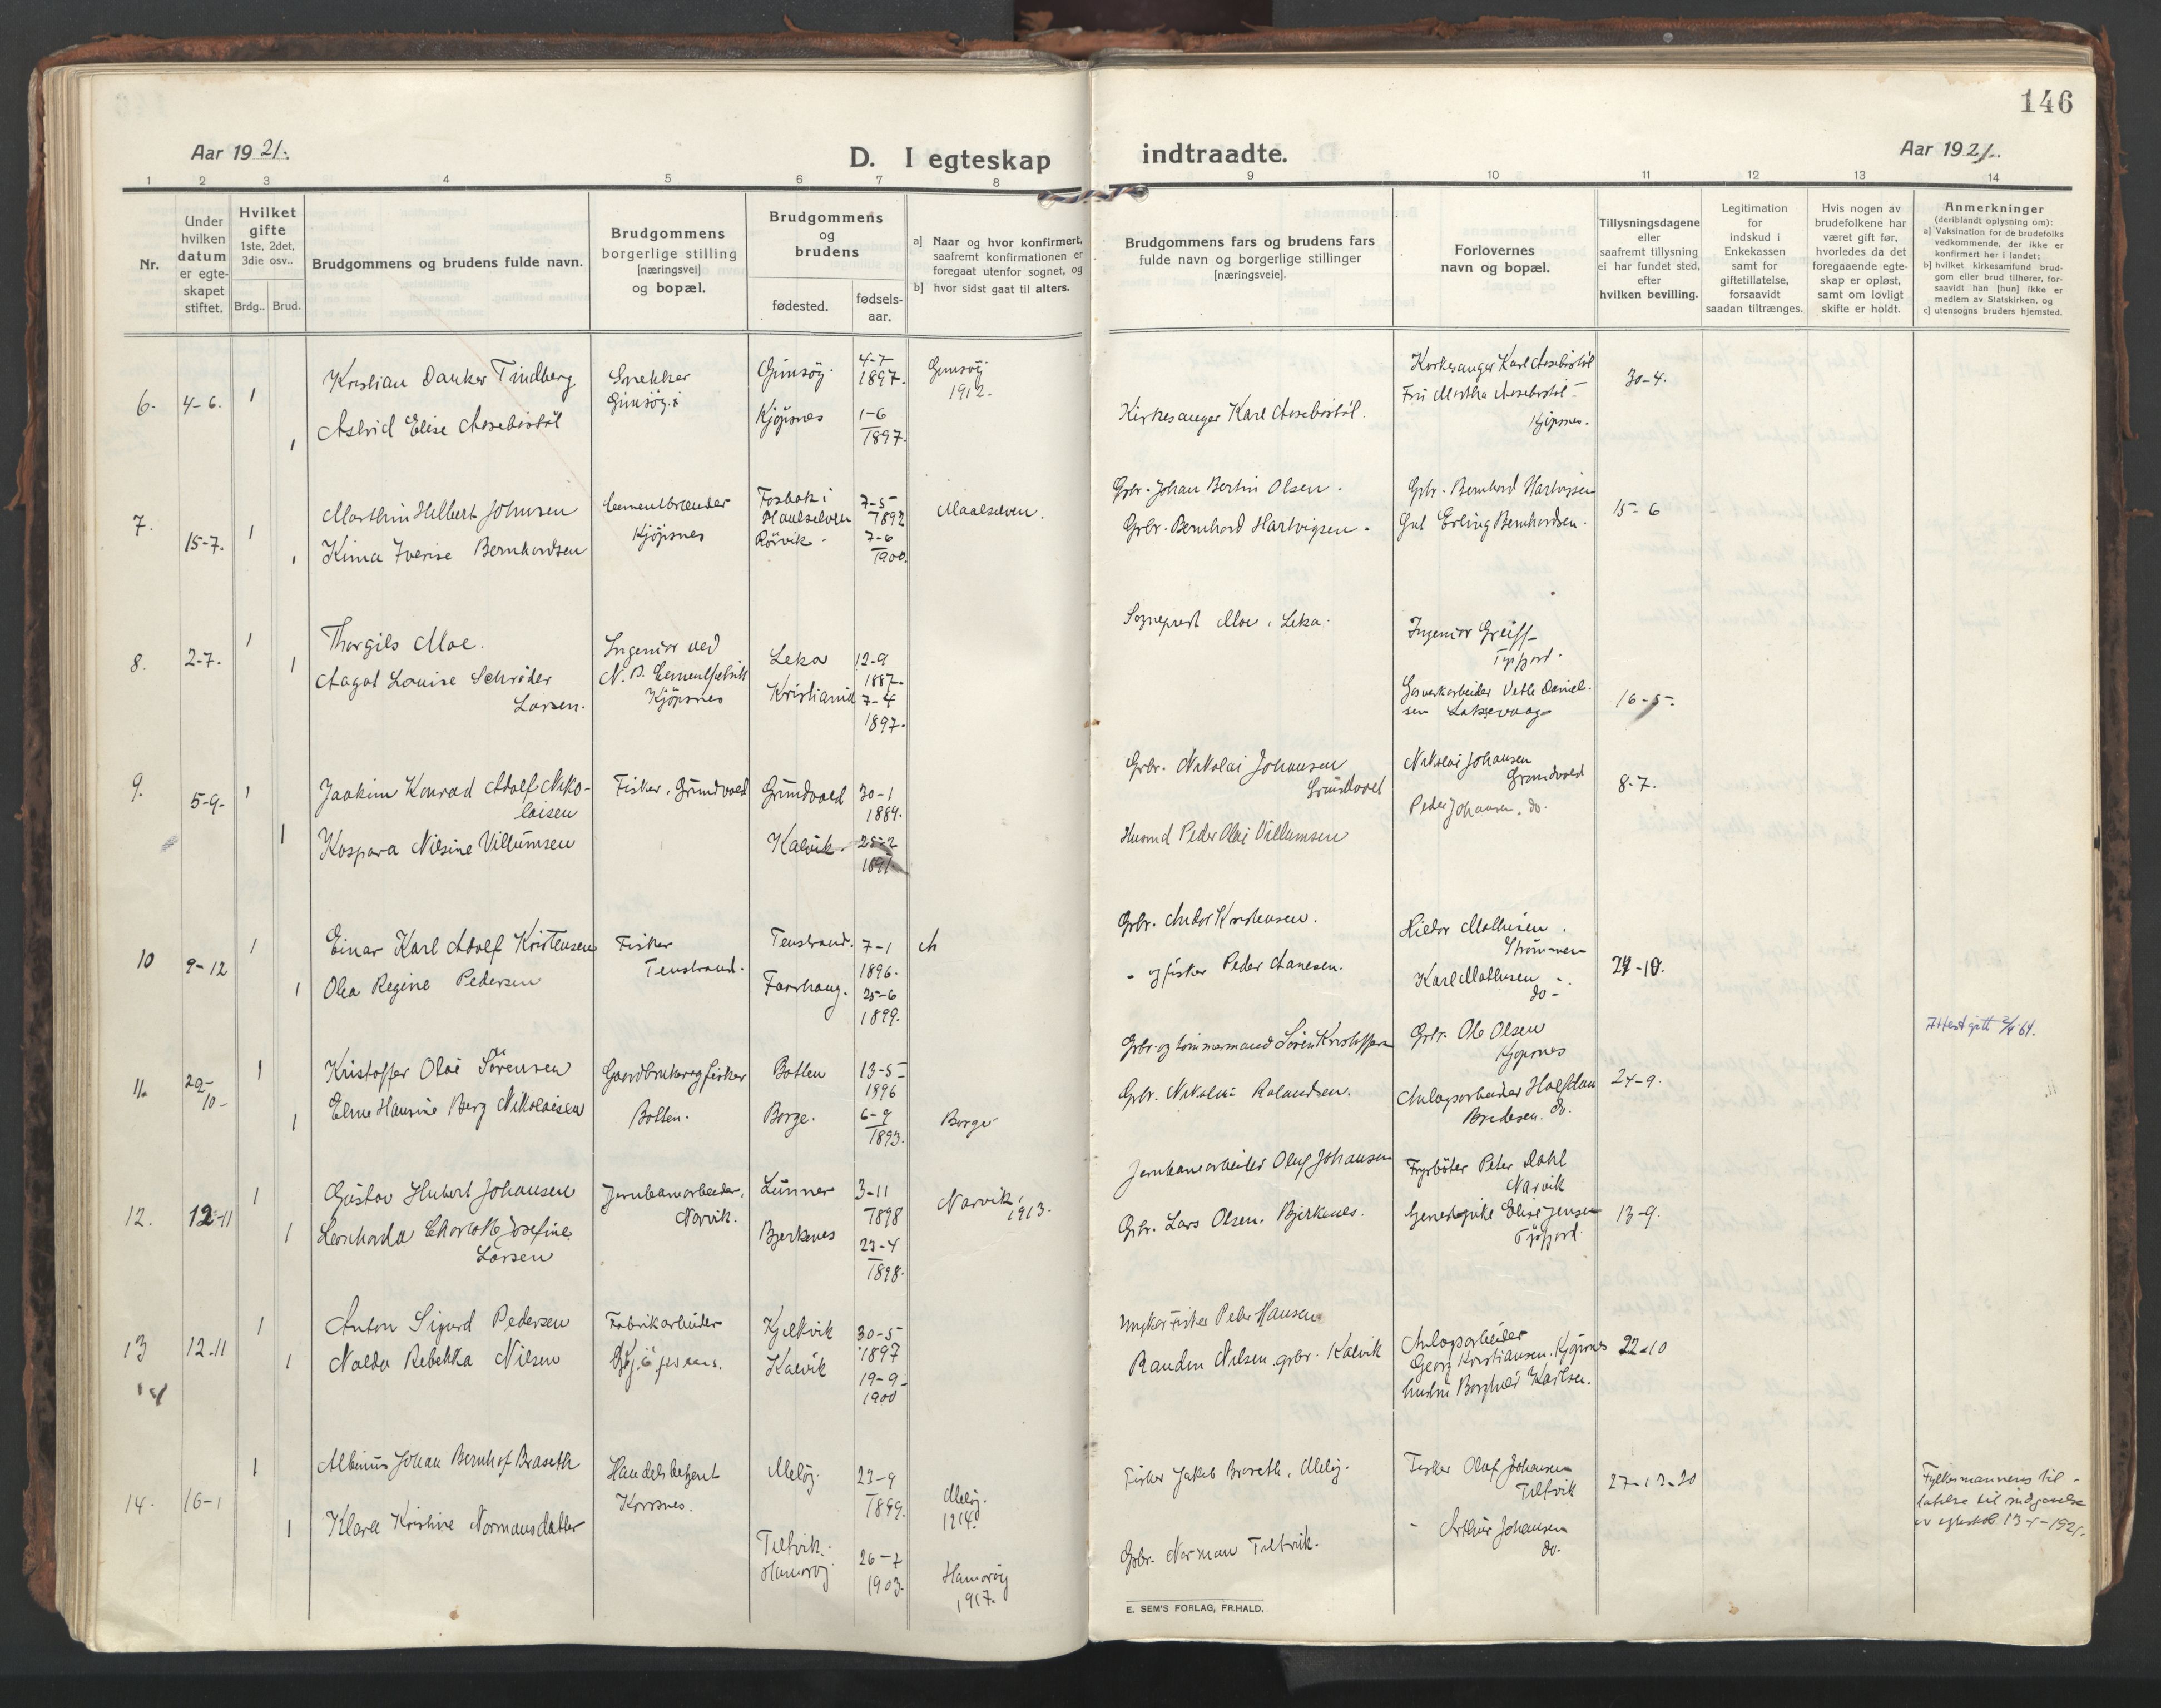 146
Aar 1921.
D. I egteskap
indtraadte.
Aar 1921.
1 2 3 4 5 6 7 8 9 10 11 12 13 14
Nr.
Under
hvilken
datum
er egte-
skapet
stiftet.
Hvilket
gifte
1ste, 2det,
3die osv..
Brdg..
Brud.
Brudgommens og brudens fulde navn.
Brudgommens
borgerlige stilling
[næringsvei]
og bopæl.
Brudgommens
og
brudens
fødested.
fødsels-
aar.
a] Naar og hvor konfirmert,
saafremt konfirmationen er
foregaat utenfor sognet, og
b] hvor sidst gaat til alters.
Brudgommens fars og brudens fars
fulde navn og borgerlige stillinger
[næringsveie].
Forlovernes
navn og bopæl.
Tillysningsdagene
eller
saafremt tillysning
ei har fundet sted,
efter
hvilken bevilling.
Legitimation
for
indskud i
Enkekassen
samt for
giftetillatelse,
forsaavidt
saadan tiltrænges.
Hvis nogen av
brudefolkene har
været gift før,
hvorledes da det
foregaaende egte-
skap er opløst,
samt om lovligt
skifte er holdt.
Anmerkninger
(deriblandt oplysning om):
a] Vaksination for de brudefolks
vedkommende, der ikke er
konfirmert her i landet;
b] hvilket kirkesamfund brud-
gom eller brud tilhører, for-
saavidt han [hun] ikke er
medlem av Statskirken, og
c] utensogns bruders hjemsted.
6.
4-6.
1
1
Kristian Danker Tindberg
Astrid Elise Aasebøstøl
Snekker
Gimsøy
Gimsøy.
4-7
1897.
Kjøpsnes
1-6
1897.
Gimsøy
1912.
Kirkesanger Karl Aasebøstøl.
Kirkesanger Karl Aasebøstøl
Fru Martha Aasebøstøl
Kjøpsnes.
30-4.
7.
15-7.
1
1
Marthin Hilbert Johnsen
Kima Iverise Bernhardsen
Cementbrænder
Kjøpsnes
Fosbak i
Maalselven
7-5
1892
Rörvik
7-6
1900.
Maalselven.
Grbr. Johan Bertin Olsen.
Grbr. Bernhard Hartvigsen.
Grbr. Bernhard Hartvigsen
Gut Erling Bernhardsen.
15-6
8.
2-7.
1
1
Thorgils Moe.
Aagot Louise Schrøder
Larsen.
Ingeniør ved
N. P. Cementfabrik
Kjöpsnes
Leka
12-9
1887.
Kristiania
7-4
1897.
Sogneprest Moe, Leka.
Ingeniør Greiff
Tysfjord.
Gasverkarbeider Vetle Daniel-
sen Laksevaag
16-5.
9.
5-9.
1
1
Jaakim Konrad Adolf Niko-
laisen
Kaspara Nilsine Villumsen
Fisker, Grundvold
Grundvold
30-1
1889.
Kalvik.
25-2
1891.
Grbr. Nikolai Johansen
Grundvold
Husmd Peder Olai Villumsen
Nikolai Johansen
Grundvold
Peder Johansen, do.
8-7.
10
9-12
1
1
Einar Karl Adolf Kristensen
Olea Regine Pedersen
Fisker
Tenstrand.
Tenstrand.
7-1
1896.
Forrhaug.
25-6
1899.
Grbr. Andor Kristensen.
- og fisker Peder Aanesen.
Hildor Mathisen.
Strømmen
Karl Mathisen
do
24-10.
11.
29-
10-
1
1
Kristoffer Olai Sörensen
Eline Hansine Berg Nikolaisen
Gaardbruker og fisker
Botten.
Botten
13-5
1896
Borge.
6-9
1893.
Borge
Grbr. og tømmermand Søren Kristoffersen
Grbr. Nikolai Rolandsen.
Grbr. Ole Olsen
Kjøpsnes
Anlægsarbeider Halfdan
Bredesen. do.
24-9.
Attest gitt 2/4 64.
12.
12-11
1
1
Gustav Hubert Johansen
Leonharda Charlotte Josefine
Larsen
Jernbanearbeider,
Narvik.
Lunner
3-11
1898
Bjerknes
23-4
1898.
Narvik,
1913.
Jernbanearbeider Oluf Johansen
Grbr. Lars Olsen, Bjerknes.
Fyrböter Peter Dahl
Narvik
Tjenestepike Elise Jensen
Tysfjord.
13-9.
13
12-11
1
1
Anton Sigurd Pedersen
Nalda Rebekka Nilsen
Fabrikarbeider
Kjöpsnes.
Kjelkvik
30-5
1897
Kalvik
19-9
1900
Ungkar Fisker Peder Hansen
Randin Nilsen grbr. Kalvik
Anlægsarbeider
Georg Kristiansen, Kjøpsnes
hustru Borghild Karlsen.
22-10
14.
16-1
1
1
Albinus Johan Bernhof Braseth
Klara Kristine Normansdatter
Handelsbetjent
Korsnes.
Meløy.
23-9
1899.
Tiltvik.
Hamarøy
26-7
1903.
Meløy.
1914.
Hamarøy
1917.
Fisker Jakob Braseth, Meløy.
Grbr. Norman Tiltvik.
Fisker Olaf Johansen
Tiltvik
- Arthur Johansen
do.
27-12-20
Fylkesmannens til-
latelse til indgaaelse
av egteskab 13-1-1921.
E. SEM'S FORLAG, FR.HALD.